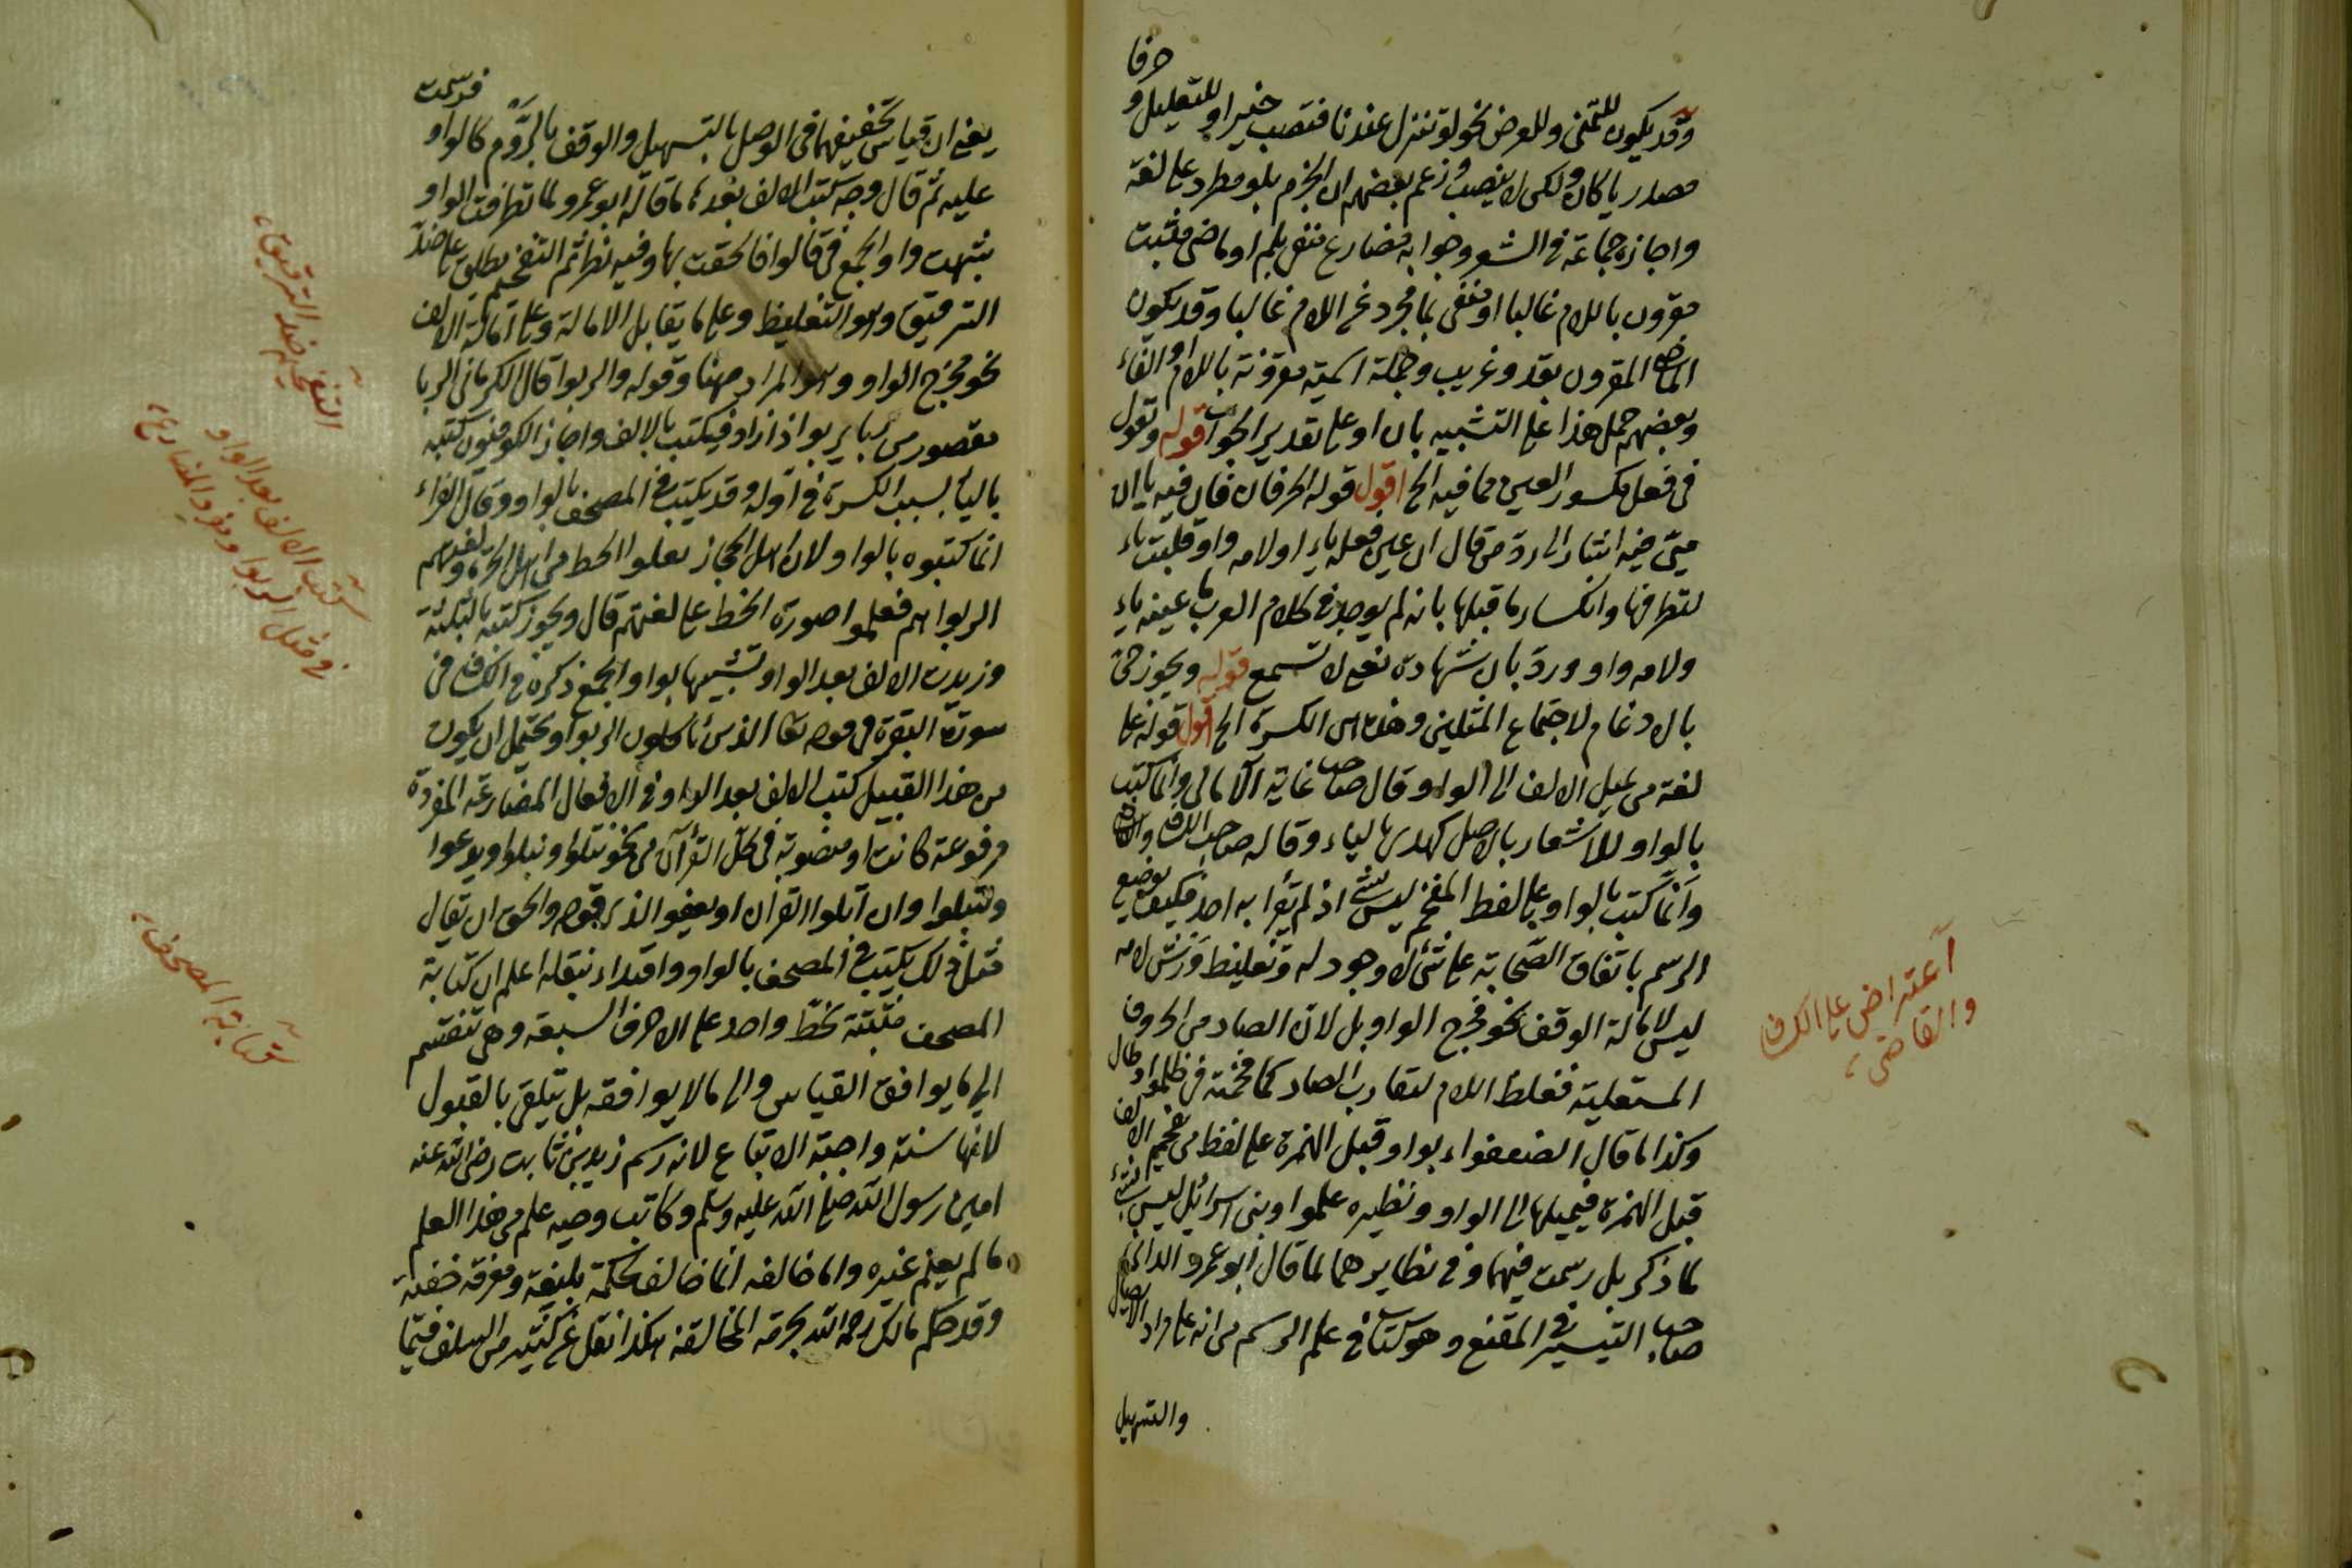 حرفا
وقد يكون للتمنى وللعرض نحو لو تنزل عندنا فتصيب خيرا وللتعليل و
مصدريا كان ولكن لا ينصب وزعم بعضهم ان الجزم بلو مطرد على لغة
واجازه جماعة فى الشعر وجوابه مضارع منفى بلم او ماض مثبت
مقرون باللام غالبا او منفى بما مجرد عن اللام غالبا وقد يكون
الماضى المقرون بقد وغريب وجملة اسمية مقرونة باللام او الفاء
وبعضهم حمل هذا على التشبيه بان او على تقدير الجواب قوله وتقول
فى فعل مكسور العين مما فيه الخ اقول قوله الحرفان فان فيه يا ان
حيى فيه اشار الى رد من قال ان عين فعله ياء ولامه واو قلبت ياء
لتطرفها وانكسار ما قبلها بانه لم يوجد فى كلام العرب ما عينه ياء
ولامه واو ورد بان شهادة نفى لا تسمع قوله ويجوز حى
بالادغام لاجتماع المثلين وهذه اى الكسرة الخ اقول قوله على
لغة من يميل الالف الى الواو وقال صاحب غاية الامالى وانما كتب
بالواو للاشعار بالاصل كهدى بالياء وقاله صاحب الكشاف
وانما كتب بالواو على لفظ المفخم ليس بشئ اذ لم يقرأ به احد فكيف يوضع
الرسم باتفاق الصحابة على شئ لا وجود له وتغليظ ورش لامه
ليس لامالة الوقف نحو مخرج الواو بل لان الصاد من الحروف
المستعلية فغلظ اللام لتقارب الصاد كما فخمته فى ظلموا وطال
وكذا ما قال الضعفواء بواو قبل الهمزة على لفظ من يفخم الالف
قبل الهمزة فيميلها الى الواو ونظيره علموا وبنى اسرائيل ليس بشئ
لما ذكر بل رسمت فيهما وفى نظايرهما لما قال ابو عمرو الدانى
صاحب التيسير فى المقنع وهو كتاب فى علم الرسم من انه على مراد الاتصال
والتسهيل
اعتراض على الكشاف
والقاضى
فرسمت
يعنى ان قياس تخفيفهما فى الوصل بالتسهيل والوقف بالروم كالواو
عليه ثم قال وجه كتب الالف بعدها ما قاله ابو عمرو لما تطرفت الواو
شبهت واو الجمع فى قالوا فالحقت بها وفيه نظر ثم التفخيم يطلق على ضد
الترقيق وهو التغليظ وعلى ما يقابل الامالة وعلى امالة الالف
نحو مخرج الواو وهو المراد ههنا وقوله والربوا قال الكرمانى الربا
مقصور من ربا يربوا اذا زاد فيكتب بالالف واجاز الكوفيون كتبه
بالياء بسبب الكسرة فى اوله وقد يكتب فى المصحف بالواو وقال الفراء
انما كتبوه بالواو لان اهل الحجاز تعلموا الخط من اهل الحيرة ولغتهم
الربوا هم فعلموا صورة الخط على لغتهم قال ويجوز كتبه بالثلثة
وزيدت الالف بعد الواو تشبيها بواو الجمع ذكره فى الكشاف فى
سورة البقرة فى قوله تعالى الذين ياكلون الربوا ويحتمل ان يكون
من هذا القبيل كتب الالف بعد الواو فى الافعال المضارعة المفردة
مرفوعة كانت او منصوبة فى كل القرآن من نحو نتلوا ونبلوا ويدعوا
ولتتلوا وان اتلوا القرآن او يعفوا الذى وقوله والحق ان يقال
مثل ذلك يكتب فى المصحف بالواو واقتداء بنقله اعلم ان كتابة
المصحف مثبتة بخط واحد على الاحرف السبعة وهى تنقسم
الى ما يوافق القياس والى ما لا يوافقه بل تتلقى بالقبول
لانها سنة واجبة الاتباع لانه رسم زيد بن ثابت رضى الله عنه
امين رسول الله صلى الله عليه وسلم وكاتب وحيه علم من هذا العلم
ما لم يعلم غيره واما خالفه انما خالف لحكمة بليغة ومعرفة خفية
وقد حكم مالك رحمه الله بحرمة المخالفة هكذا نقل عن كثير من السلف فيما
التفخيم ضد الترقيق
كتب الالف بعد الواو
فى مثل الربوا ومفرد المضارع
كتابة المصحف